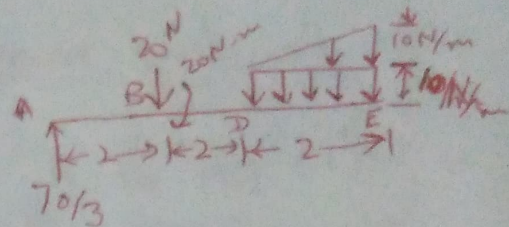 20N
20N-m
10N/m
A
B
10N/m
D
E
2
2
2
70/3